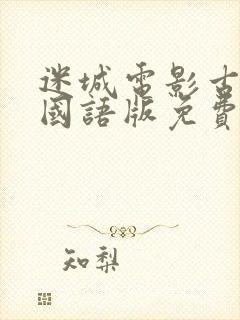 迷城電影古
國語版免費
知梨